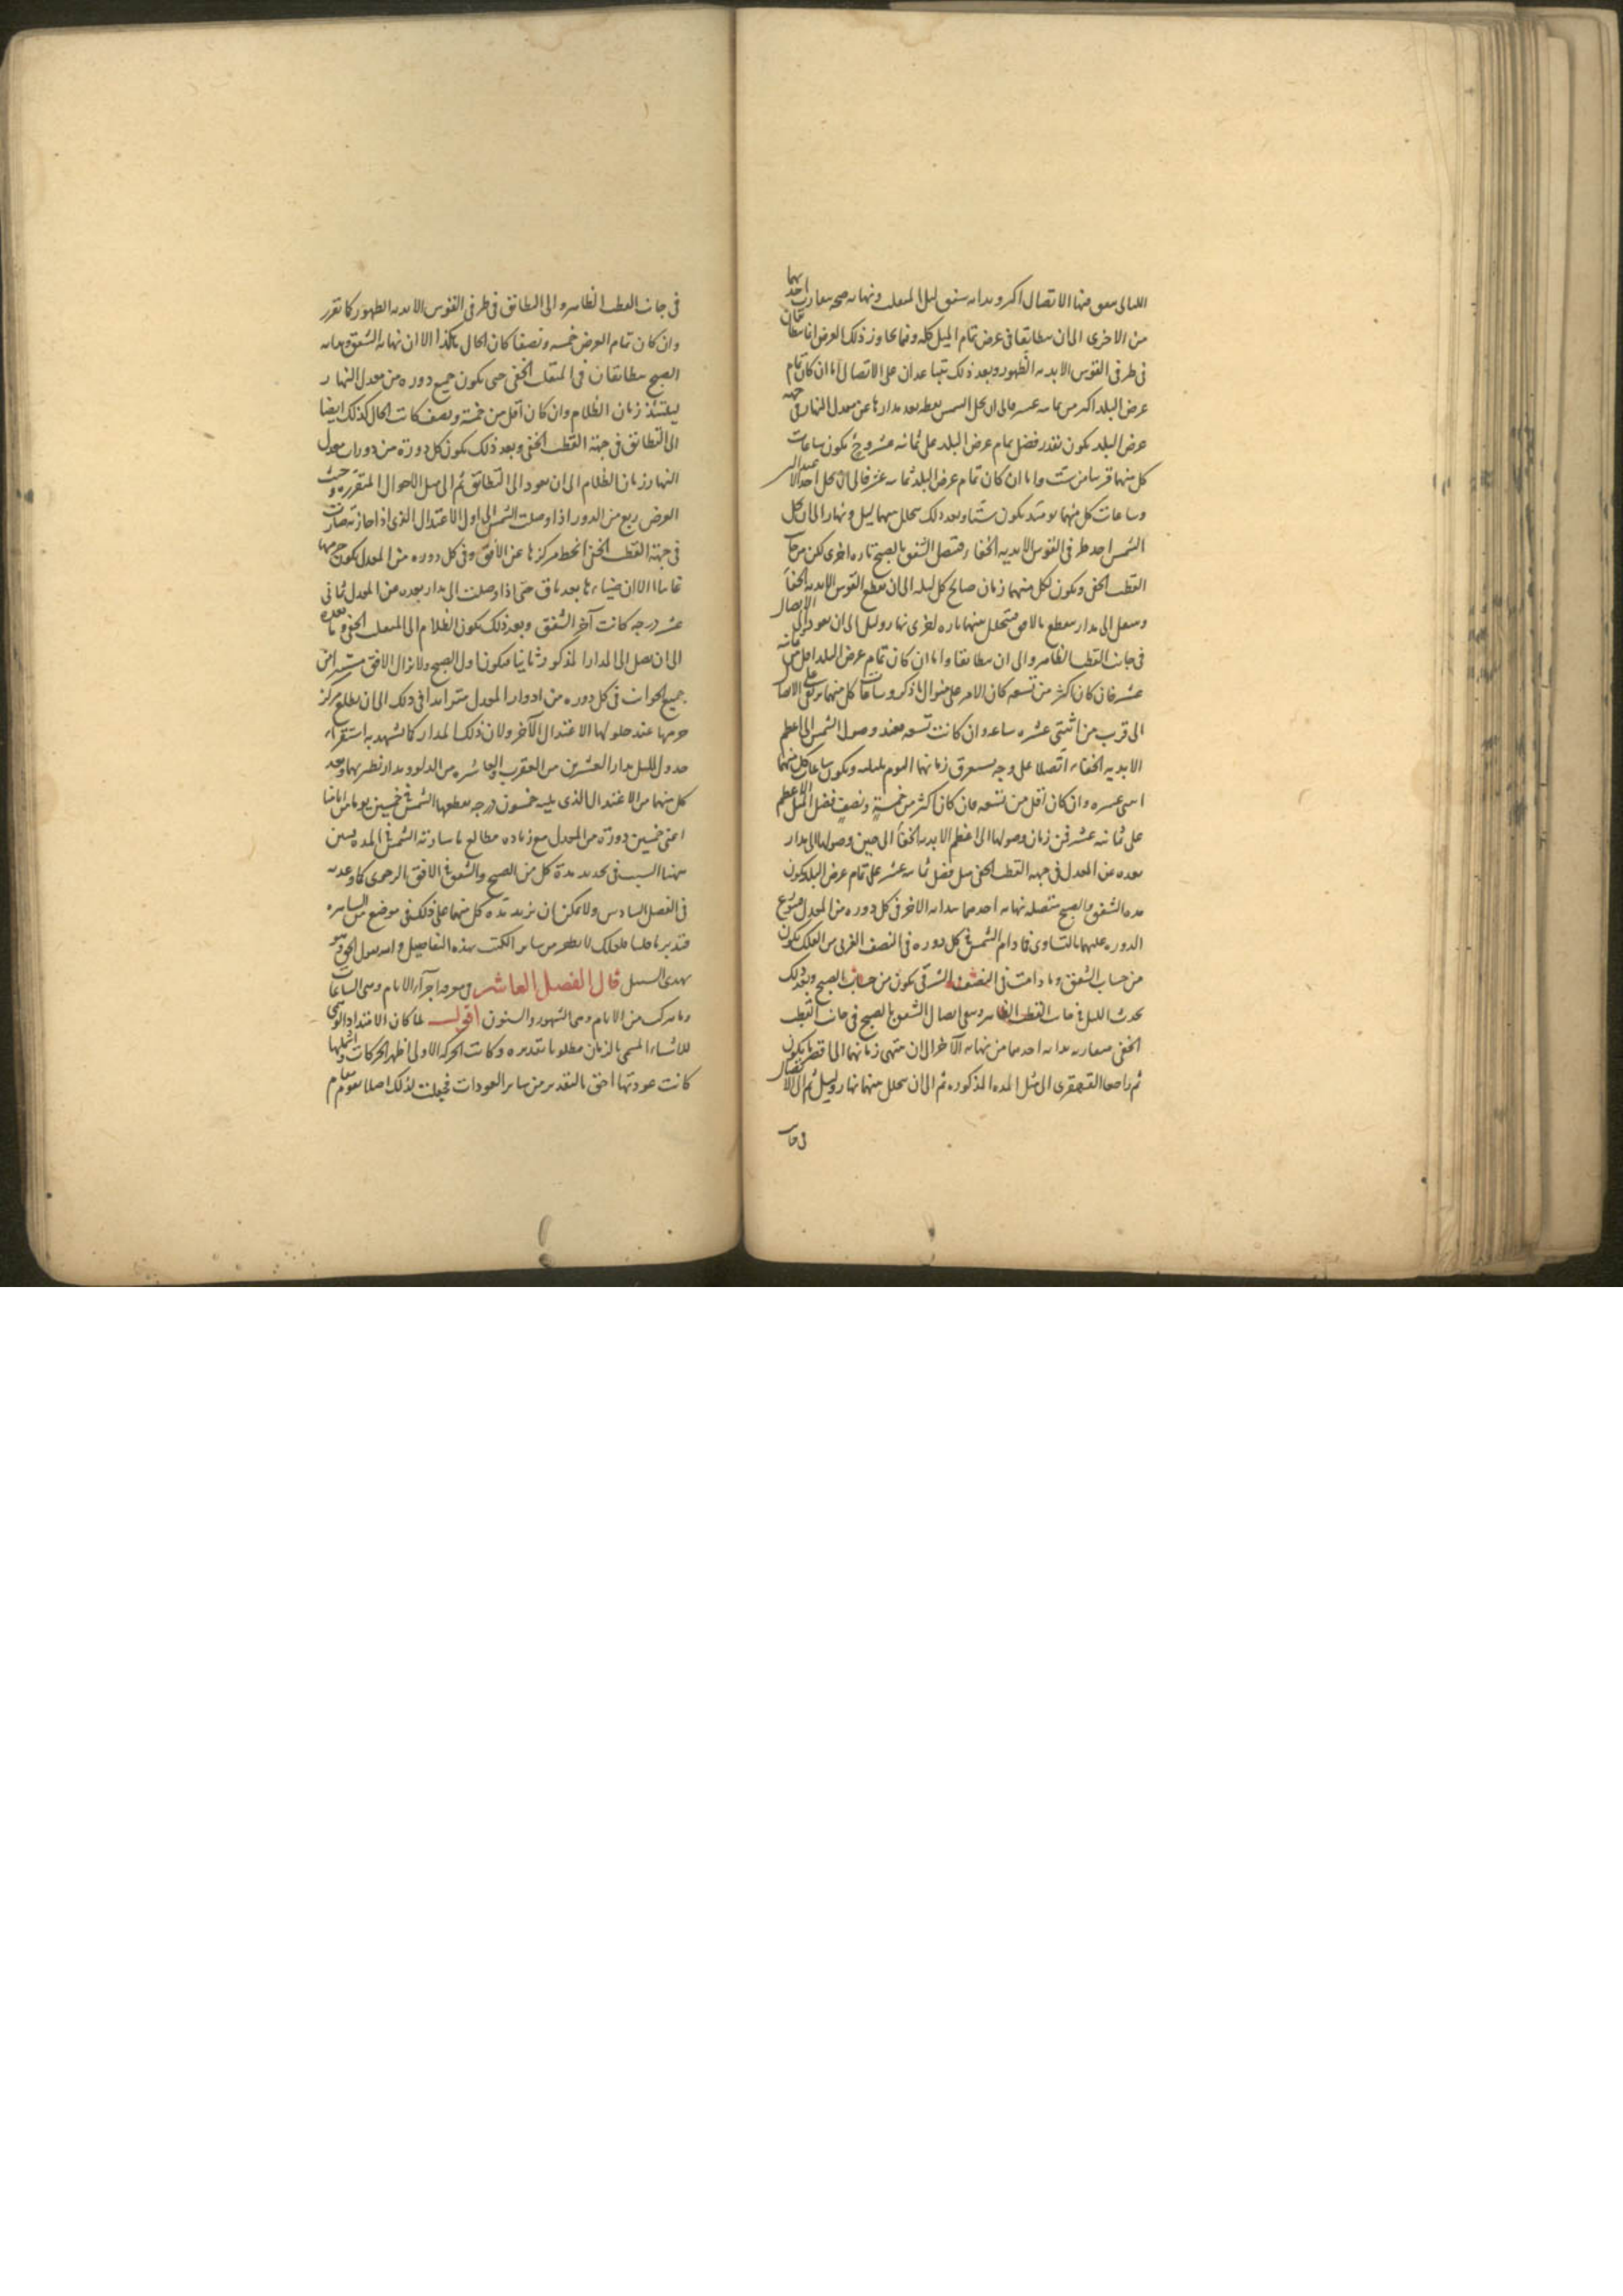 الليالى منها الاتصال اكثر وبداية شفق ليل المنقلب ونهاية صبحه احديهما
من الاخرى الى ان يتطابقا فى عرض تمام الميل كله وفيما يجاوز ذلك العرض انما يتطابقان
فى طرفى القوس الابدية الظهور وبعد ذلك تتباعدان على الاتصال اما ان كان تمام
عرض البلد اكثر من ثمانية عشر فالى ان يحل الشمس نقطة بعد مدارها عن معدل النهار فى جهة
عرض البلد يكون بقدر فضل تمام عرض البلد على ثمانية عشر وح يكون ساعات
كل منها قريبا من ست واما ان كان تمام عرض البلد ثمانية عشر فالى ان يحل احد
وساعات كل منهما يكون ستا وبعد ذلك يتخلل بينهما ليل ونهار الى ان يحل
الشمس احد طرفى القوس الابدية الخفاء فيتصل الشفق بالصبح تارة اخرى لكن من جانب
القطب الخفى ويكون لكل منهما زمان صالح كل ليلة الى ان يقطع القوس الابدية الخفاء
الى مدار يقطع الافق فيتخلل بينهما تارة اخرى نهار وليل الى ان يعود الى الاتصال
فى جانب القطب الظاهر والى ان يتطابقا واما ان كان تمام عرض البلد اقل من ثمانية
عشر فان كان اكثر من تسعة كان الامر على منوال ما ذكر وساعات كل منهما
الى قريب من اثنتى عشرة ساعة وان كانت تسعة فعند وصول الشمس الى اعظم
الابدية الخفاء اتصلا على وجه يستغرق زمانهما اليوم بليلته ويكون ساعات كل منهما
اثنى عشرة وان كان اقل من تسعة فان كان اكثر من خمسة ونصف فضل الميل الاعظم
على ثمانية عشر فمن زمان وصولها الى اعظم الابدية الخفاء الى حين وصولها الى مدار
بعده عن المعدل فى جهة القطب الخفى مثل فضل ثمانية عشر على تمام عرض البلد يكون
مدة الشفق والصبح متصلة نهاية احدهما ببداية الاخر فى كل دورة من المعدل
الدورة عليهما بالتساوى فما دام الشمس فى كل دورة فى النصف الغربى من الفلك يكون
من حساب الشفق وما دامت فى النصف الشرقى يكون من حساب الصبح وبعد ذلك
يحدث الليل فى جانب القطب الظاهر اتصال الشفق بالصبح فى جانب القطب
الخفى بداية احدهما من نهاية الآخر الى ان ينتهى زمانهما الى اقصر ما يكون
ثم القهقرى الى مثل المدة المذكورة ثم الى ان يتخلل بينهما نهار وليل ثم الى الاتصال
فى جانب
فى جانب القطب الظاهر والى التطابق فى طرفى القوس الابدية الظهور كما تقرر
وان كان تمام العرض خمسة ونصفا كان الحال هكذا الا ان نهاية الشفق وبداية
الصبح يتطابقان فى المنقلب الخفى حتى يكون جميع دورة من معدل النهار
ليلتئذ زمان الظلام وان كان اقل من خمسة ونصف كانت الحال كذلك ايضا
الى التطابق فى جهة القطب الخفى وبعد ذلك يكون كل دورة من دورات معدل
النهار زمان الظلام الى ان يعود الى التطابق ثم الى مثل الاحوال المتقررة وحيث
العرض ربع من الدور اذا وصلت الشمس الى اول الاعتدال الذى اذا جازته صارت
فى جهة القطب الخفى انحط مركزها عن الافق وفى كل دورة من المعدل يكون جرمها
غائبا الا ان ضياءها بعد باق حتى اذا وصلت الى مدار بعده من المعدل ثمانى
عشر درجة كانت آخر الشفق وبعد ذلك يكون الظلام الى المنقلب الخفى وما بعده
الى ان تصل الى المدار المذكور ثانيا فيكون اول الصبح ولا يزال الافق
جميع الجوانب فى كل دورة من ادوار المعدل متزايدا فى ذلك الى ان يطلع مركز
جرمها عند حلولها الاعتدال الآخر ولان ذلك المدار كما يشهد به استقراء
جدول الميل مدار العشرين من العقرب والعاشرة من الدلو ومدار نظيريهما وبعد
كل منهما من الاعتدال الذى يليه خمسون درجة يقطعها الشمس فى خمسين يوما من ايامنا
اعنى خمسين دورة من المعدل مع زيادة مطالع ما سارته الشمس فى المدة تبين
ههنا السبب فى تحديد مدة كل من الصبح والشفق فى الافق الرحوى كما وعدته
فى الفصل السادس ولا يمكن ان يزيد مدة كل منهما على ذلك فى موضع من
فتدبر ما علك لا تظفر من سائر الكتب بهذه التفاصيل والله يقول الحق وهو
يهدى السبيل قال الفصل العاشر فى معرفة اجزاء الايام وهى الساعات
وما يتركب من الايام وهى الشهور والسنون اقول لما كان الامتداد
للاشياء المسمى بالزمان مطلوبا تقديره وكانت الحركة الاولى اظهر الحركات واشملها
كانت عودتها احق بالتقدير من سائر العودات فجعلت لذلك اصلا